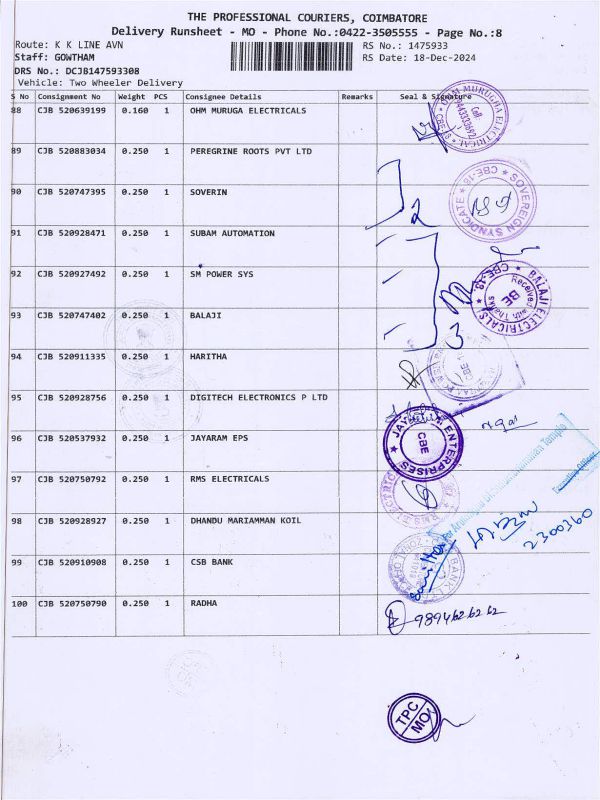 THE PROFESSIONAL COURIERS, COIMBATORE
Delivery Runsheet - MO - Phone No.:0422-3505555 - Page No.:8
Route: K K LINE AVN RS No.: 1475933
Staff: GOWTHAM RS Date: 18-Dec-2024
DRS No.: DCJB147593308
Vehicle: Two Wheeler Delivery
S No Consignment No Weight PCS Consignee Details Remarks Seal & Signature
88 CJB 520639199 0.160 1 OHM MURUGA ELECTRICALS
89 CJB 520883034 0.250 1 PEREGRINE ROOTS PVT LTD
90 CJB 520747395 0.250 1 SOVERIN
SOVEREIGN SYNDICATE ★ CBE-18 ★
2
91 CJB 520928471 0.250 1 SUBAM AUTOMATION
92 CJB 520927492 0.250 1 SM POWER SYS
BALAJI ELECTRICALS ★ CBE-18 ★
Received with Thanks
BE
93 CJB 520747402 0.250 1 BALAJI
3
94 CJB 520911335 0.250 1 HARITHA
95 CJB 520928756 0.250 1 DIGITECH ELECTRONICS P LTD
96 CJB 520537932 0.250 1 JAYARAM EPS
ENTERPRISES
CBE
97 CJB 520750792 0.250 1 RMS ELECTRICALS
98 CJB 520928927 0.250 1 DHANDU MARIAMMAN KOIL
2300360
99 CJB 520910908 0.250 1 CSB BANK
100 CJB 520750790 0.250 1 RADHA
9894626262
TPC
MO